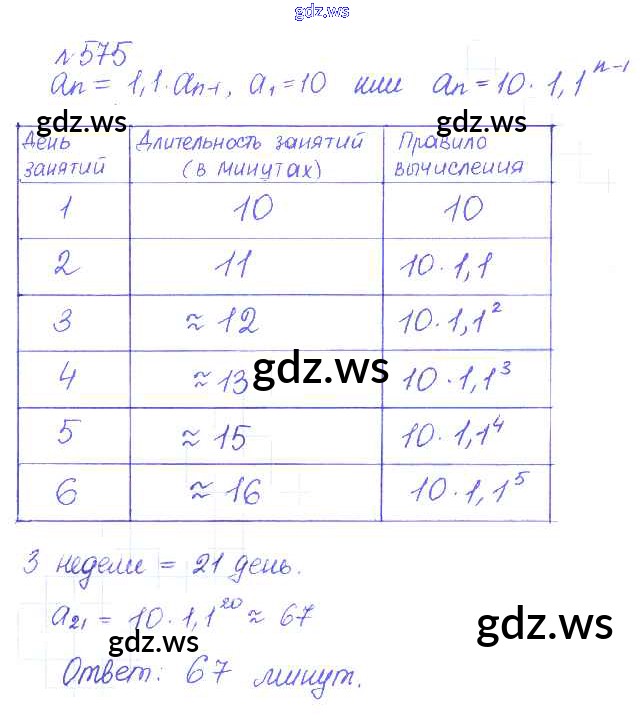 gdz.ws
№575
aₙ = 1,1·aₙ₋₁, a₁ = 10 или aₙ = 10·1,1ⁿ⁻¹
gdz.ws gdz.ws
День занятий | Длительность занятий (в минутах) | Правило вычисления
1 | 10 | 10
2 | 11 | 10·1,1
3 | ≈ 12 | 10·1,1²
4 | ≈ 13 | 10·1,1³
gdz.ws
5 | ≈ 15 | 10·1,1⁴
6 | ≈ 16 | 10·1,1⁵
3 недели = 21 день.
a₂₁ = 10·1,1²⁰ ≈ 67
gdz.ws gdz.ws
Ответ: 67 минут.
gdz.ws